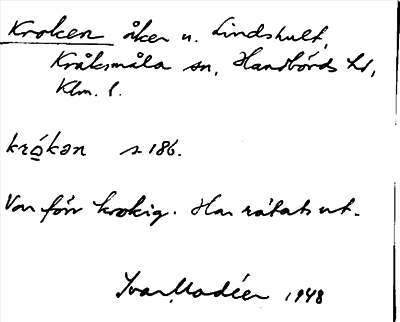 Kroken åker u. Lindshult,
Kråksmåla sn, Handbörds hd,
Klm. l.
krókən s 186.
Var förr krokig. Har rätats ut.
Ivar Modéer 1948